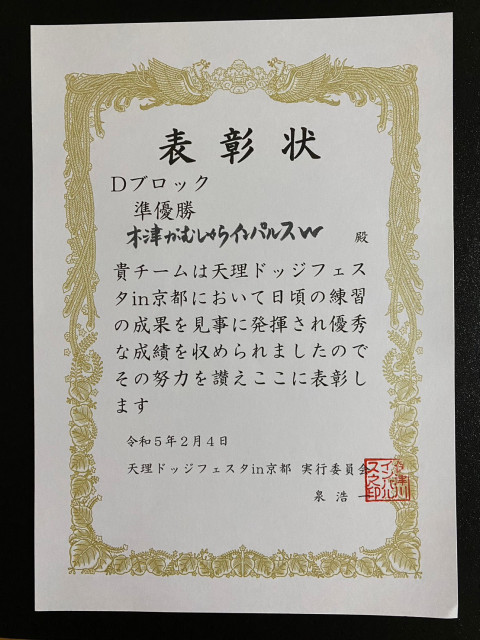 表彰状
Dブロック
準優勝
木津がむしゃらインパルスW 殿
貴チームは天理ドッジフェス
タin京都において日頃の練習
の成果を見事に発揮され優秀
な成績を収められましたので
その努力を讃えここに表彰し
ます
令和5年2月4日
天理ドッジフェスタin京都 実行委員会
泉 浩一
木津川
インパル
ス之印